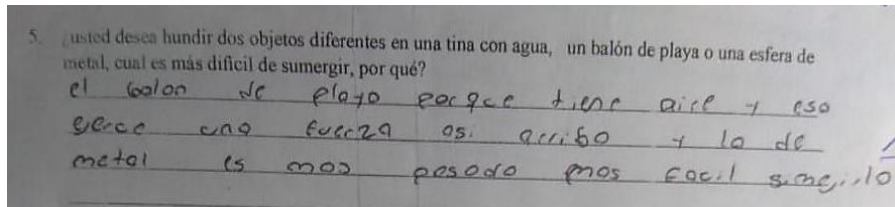 5. ¿usted desea hundir dos objetos diferentes en una tina con agua, un balón de playa o una esfera de
metal, cual es más dificil de sumergir, por qué?
el balon de playa porque tiene aire y eso
gerce una fuerza asi arriba y la de
metal es mas pesado mas facil